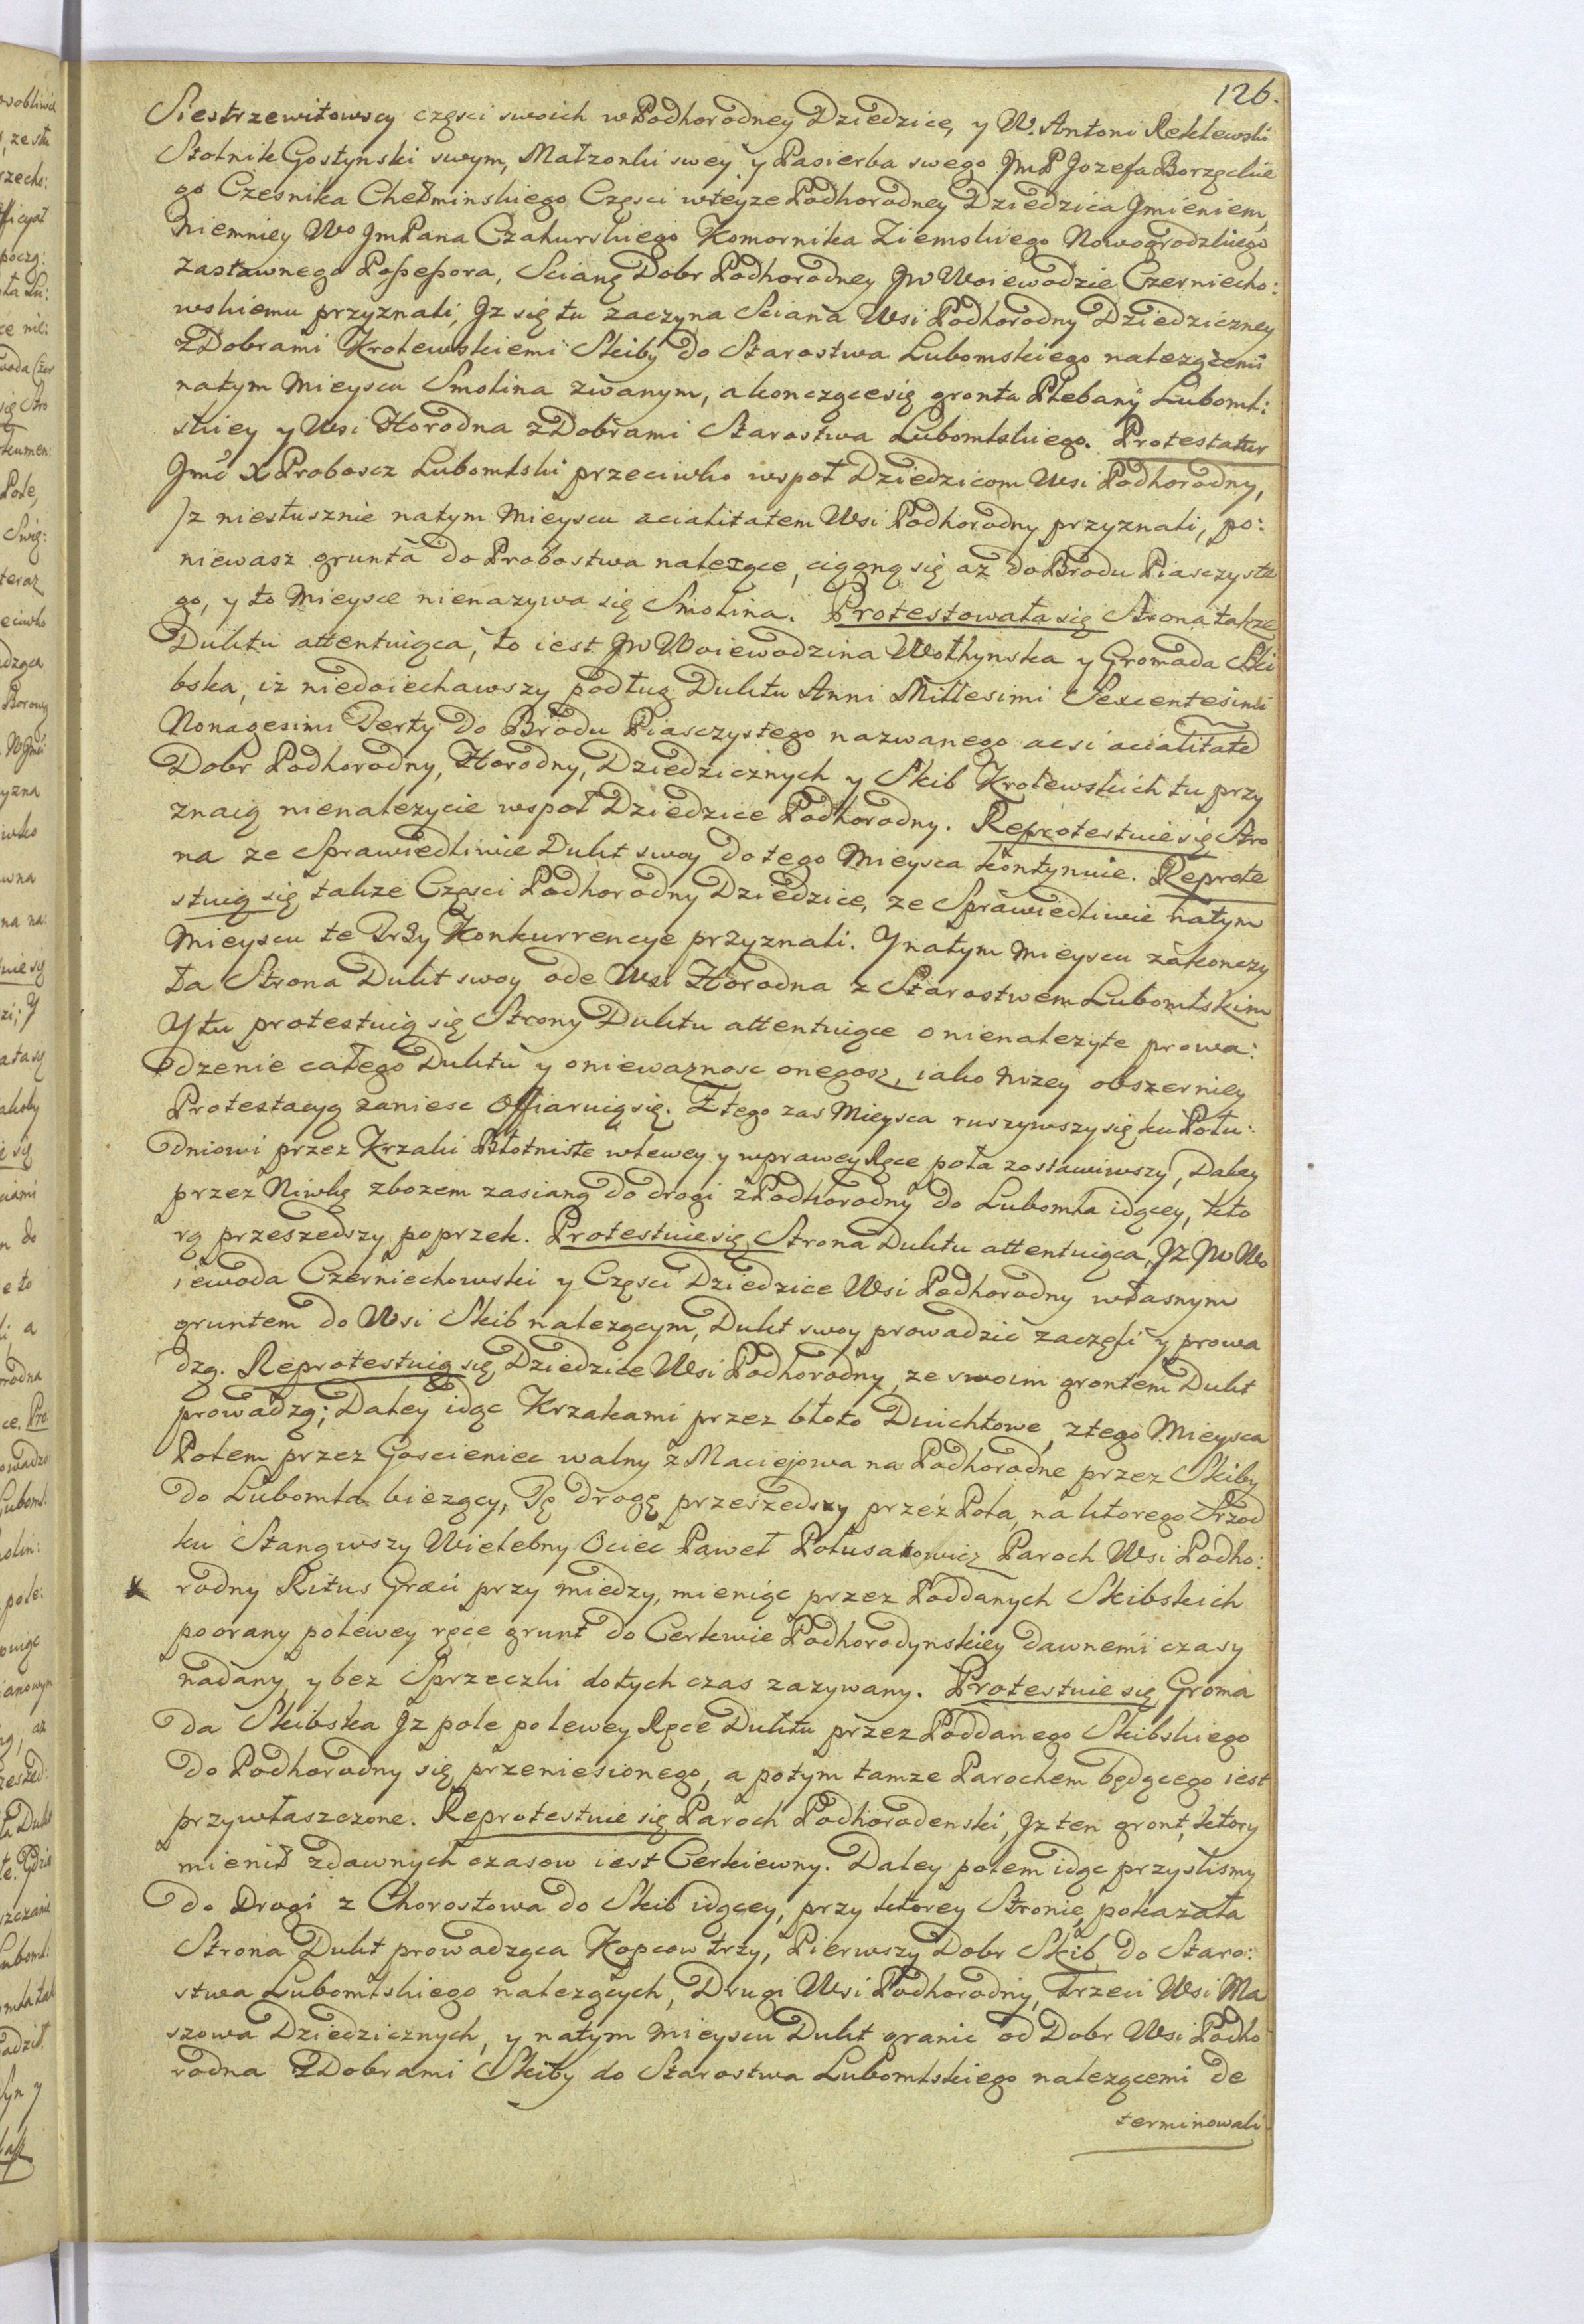 126.
Siestrzewitowscy częsci swoich w Podhorodney Dziedzice, y W. Antoni Reklewski
Stolnik Gostynski swym, Małzonki swey y Pasierba swego JmP Jozefa Borzęckie
go Czesnika Chełminskiego Częsci wteyze Podhorodney Dziedzica Jmieniem,
Niemniey Wo JmPana Czakurskiego Komornika Ziemskiego Nowogrodzkiego
zastawnego Possessora, Scianę Dobr Podhorodney JW Woiewodzie Czerniecho:
wskiemu przyznali, Jz się tu zaczyna Sciana Wsi Podhorodny Dziedziczney
z Dobrami Krolewskiemi Skiby do Starostwa Lubomskiego nalezącemi
natym Mieyscu Smolina zwanym, akonczącesię gronta Plebanÿ Luboml:
skiey y Wsi Horodna z Dobrami Starostwa Lubomlskiego. Protestatur
Jmć X Proboscz Lubomlski przeciwko wspoł Dziedzicom Wsi Podhorodny,
Jz niesłusznie natym Mieyscu acialitatem Wsi Podhorodny przyznali, po:
niewasz grunta do Probostwa nalezące, ciągną się az do Brodu Piasczyste
go, y to Mieysce nienazywa się Smolina. Protestowała się Strona takze
Duktu attentuiąca, to iest JW Woiewodzina Wołhynska y Gromada Ski
bska, iz niedoiechawszy podług Duktu Anni Millesimi Sexcentesimi
Nonagesimi Tertÿ do Brodu Piasczystego nazwanego acsi acialitate
Dobr Podhorodny, Horodny, Dziedzicznych y Skib Krolewskich tu przy
znaią nienalezycie wspoł Dziedzice Podhorodny. Reprotestuie się Stro
na ze Sprawiedliwie Dukt swoy do tego Mieysca kontynuie. Reprote
stuią się takze Częsci Podhorodny Dziedzice, ze Sprawiedliwie natym
Mieyscu te Trzy Konkurrencye przyznali. Ynatym Mieyscu zakonczy
ła Strona Dukt swoy ode Wsi Horodna z Starostwem Lubomlskim
Ytu protestuią się Strony Duktu attentuiące o nienalezyte prowa:
dzenie całego Duktu y oniewaznosc onegosz, iako nizey obszerniey
Protestacyą zaniesc offiaruiąsię. Ztego zas Mieysca ruszywszy się ku Połu:
dniowi przez Krzaki Błotniste wlewey y wprawey Ręce pola zostawiwszy, Daley
przez Niwkę zbozem zasianą do drogi z Podhorodny do Lubomla idącey, kto
rą przeszedszy poprzek. Protestuie się Strona Duktu attentuiąca, Jz JW Wo
iewoda Czerniechowski y Częsci Dziedzice Wsi Podhorodny własnym
gruntem do Wsi Skib nalezącym, Dukt swoy prowadzić zaczęli y prowa
dzą. Reprotestuią się Dziedzice Wsi Podhorodny, ze swoim grontem Dukt
prowadzą; Daley idąc Krzakami przez błoto Duichtowe, ztego Mieysca
Potem przez Goscieniec walny z Maciejowa na Podhorodne przez Skiby
do Lubomla biezący, Tę drogę przeszedszy przez Pola, na ktorego Srzod
ku Stanąwszy Wielebny Ociec Paweł Połusatowicz Paroch Wsi Podho:
rodny Ritus Græci przy miedzy, mieniąc przez Poddanych Skibskich
poorany polewey ręce grunt do Cerkwie Podhorodynskiey dawnemi czasy
nadany, y bez Sprzeczki dotych czas zazywany. Protestuie się Groma
da Skibska Jz pole polewey Ręce Duktu przez Poddanego Skibskiego
do Podhorodny się przeniesionego, a potym tamze Parochem będącego iest
przywłaszczone. Reprotestuie się Paroch Podhorodenski, Jz ten gront, ktory
mienił zdawnych czasow iest Cerkiewny. Daley potem idąc przyslismy
do Drogi z Chorostowa do Skib idącey, przy ktorey Stronie, pokazała
Strona Dukt prowadząca Kopcow trzy, Pierwszy Dobr Skib do Staro:
stwa Lubomlskiego nalezących, Drugi Wsi Podhorodny, Trzeci Wsi Ma
szowa Dziedzicznych, y natym Mieyscu Dukt granic od Dobr Wsi Podho
rodna z Dobrami Skiby do Starostwa Lubomlskiego nalezącemi de
terminowali